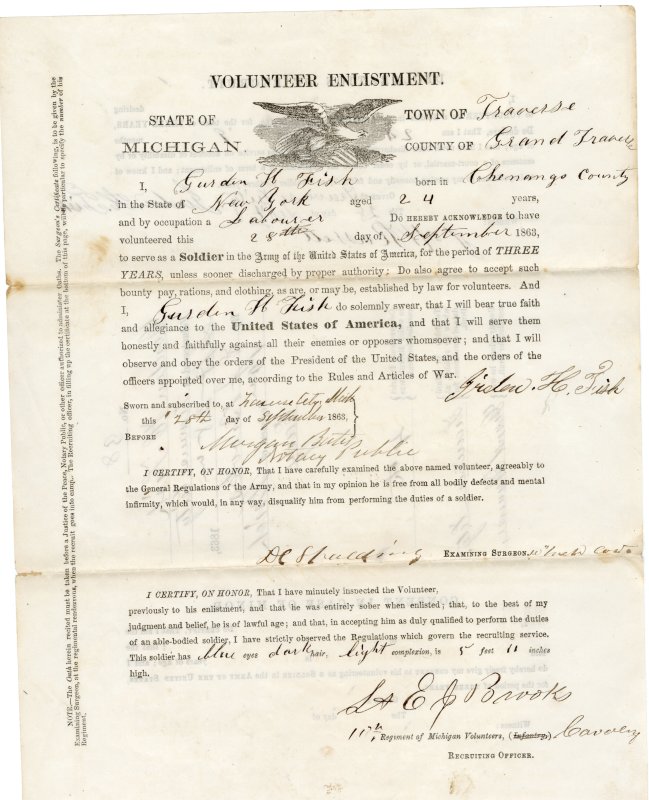 VOLUNTEER ENLISTMENT.
STATE OF
MICHIGAN.
TOWN OF Traverse
COUNTY OF Grand Traverse
I, Gurden H Fish born in Chenango County
in the State of New York aged 24 years,
and by occupation a Labourer Do HEREBY ACKNOWLEDGE to have
volunteered this 28th day of September 1863,
to serve as a Soldier in the Army of the United States of America, for the period of THREE
YEARS, unless sooner discharged by proper authority; Do also agree to accept such
bounty pay, rations, and clothing, as are, or may be, established by law for volunteers. And
I, Gurden H Fish do solemnly swear, that I will bear true faith
and allegiance to the United States of America, and that I will serve them
honestly and faithfully against all their enemies or opposers whomsoever; and that I will
observe and obey the orders of the President of the United States, and the orders of the
officers appointed over me, according to the Rules and Articles of War.
H. Fish
Sworn and subscribed to, at Traverse City Mich
this 28th day of September 1863,
BEFORE Morgan Bates
Notary Public
I CERTIFY, ON HONOR, That I have carefully examined the above named volunteer, agreeably to
the General Regulations of the Army, and that in my opinion he is free from all bodily defects and mental
infirmity, which would, in any way, disqualify him from performing the duties of a soldier.
D C Spaulding EXAMINING SURGEON.
I CERTIFY, ON HONOR, That I have minutely inspected the Volunteer,
previously to his enlistment, and that he was entirely sober when enlisted; that, to the best of my
judgment and belief, he is of lawful age; and that, in accepting him as duly qualified to perform the duties
of an able-bodied soldier, I have strictly observed the Regulations which govern the recruiting service.
This soldier has blue eyes dark hair, light complexion, is 5 feet 11 inches
high.
Lt E J Brooks
11th Regiment of Michigan Volunteers, (Infantry,) Cavalry
RECRUITING OFFICER.
NOTE.—The Oath herein recited must be taken before a Justice of the Peace, Notary Public, or other officer authorized to administer Oaths. The Surgeon's Certificate following, is to be given by the
Examining Surgeon, at the regimental rendezvous, when the recruit goes into camp. The Recruiting officer, in filling up the certificate at the bottom of this page, will be particular to specify the number of his
Regiment.